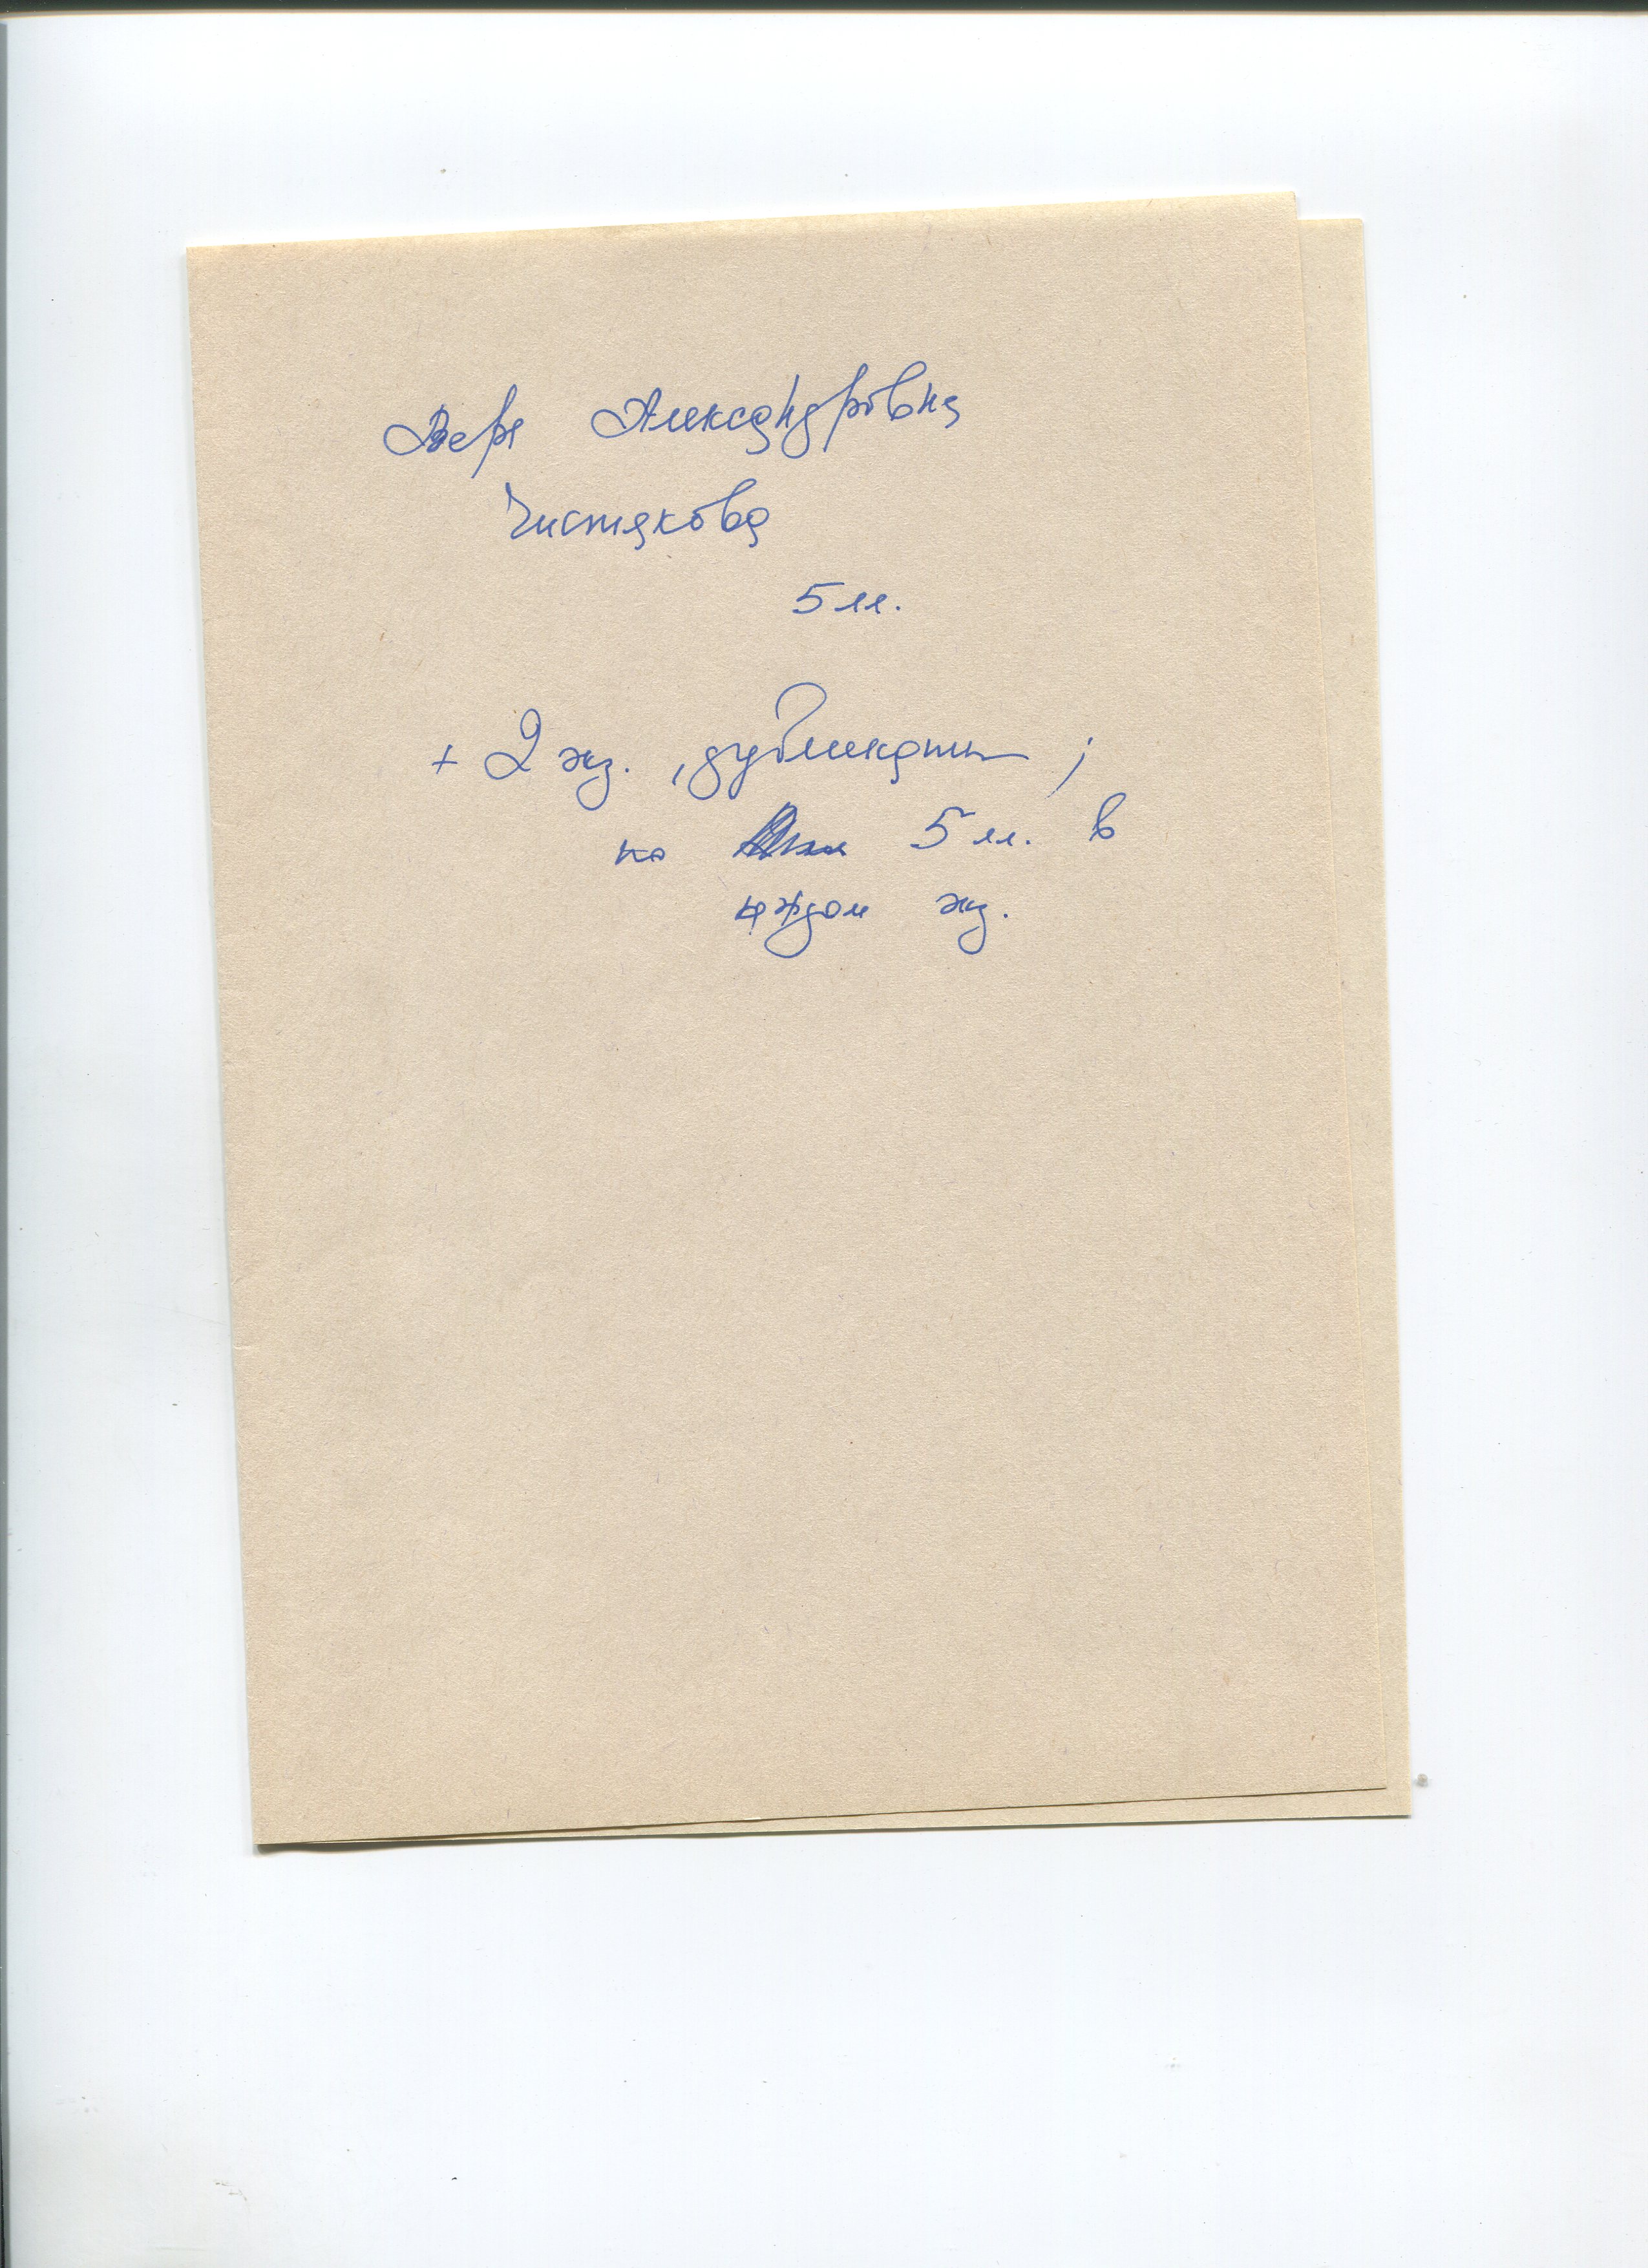 Вера Александровна
Чистякова
5 лл.
+ 2 экз., дубликаты;
по 5 лл. в
каждом экз.